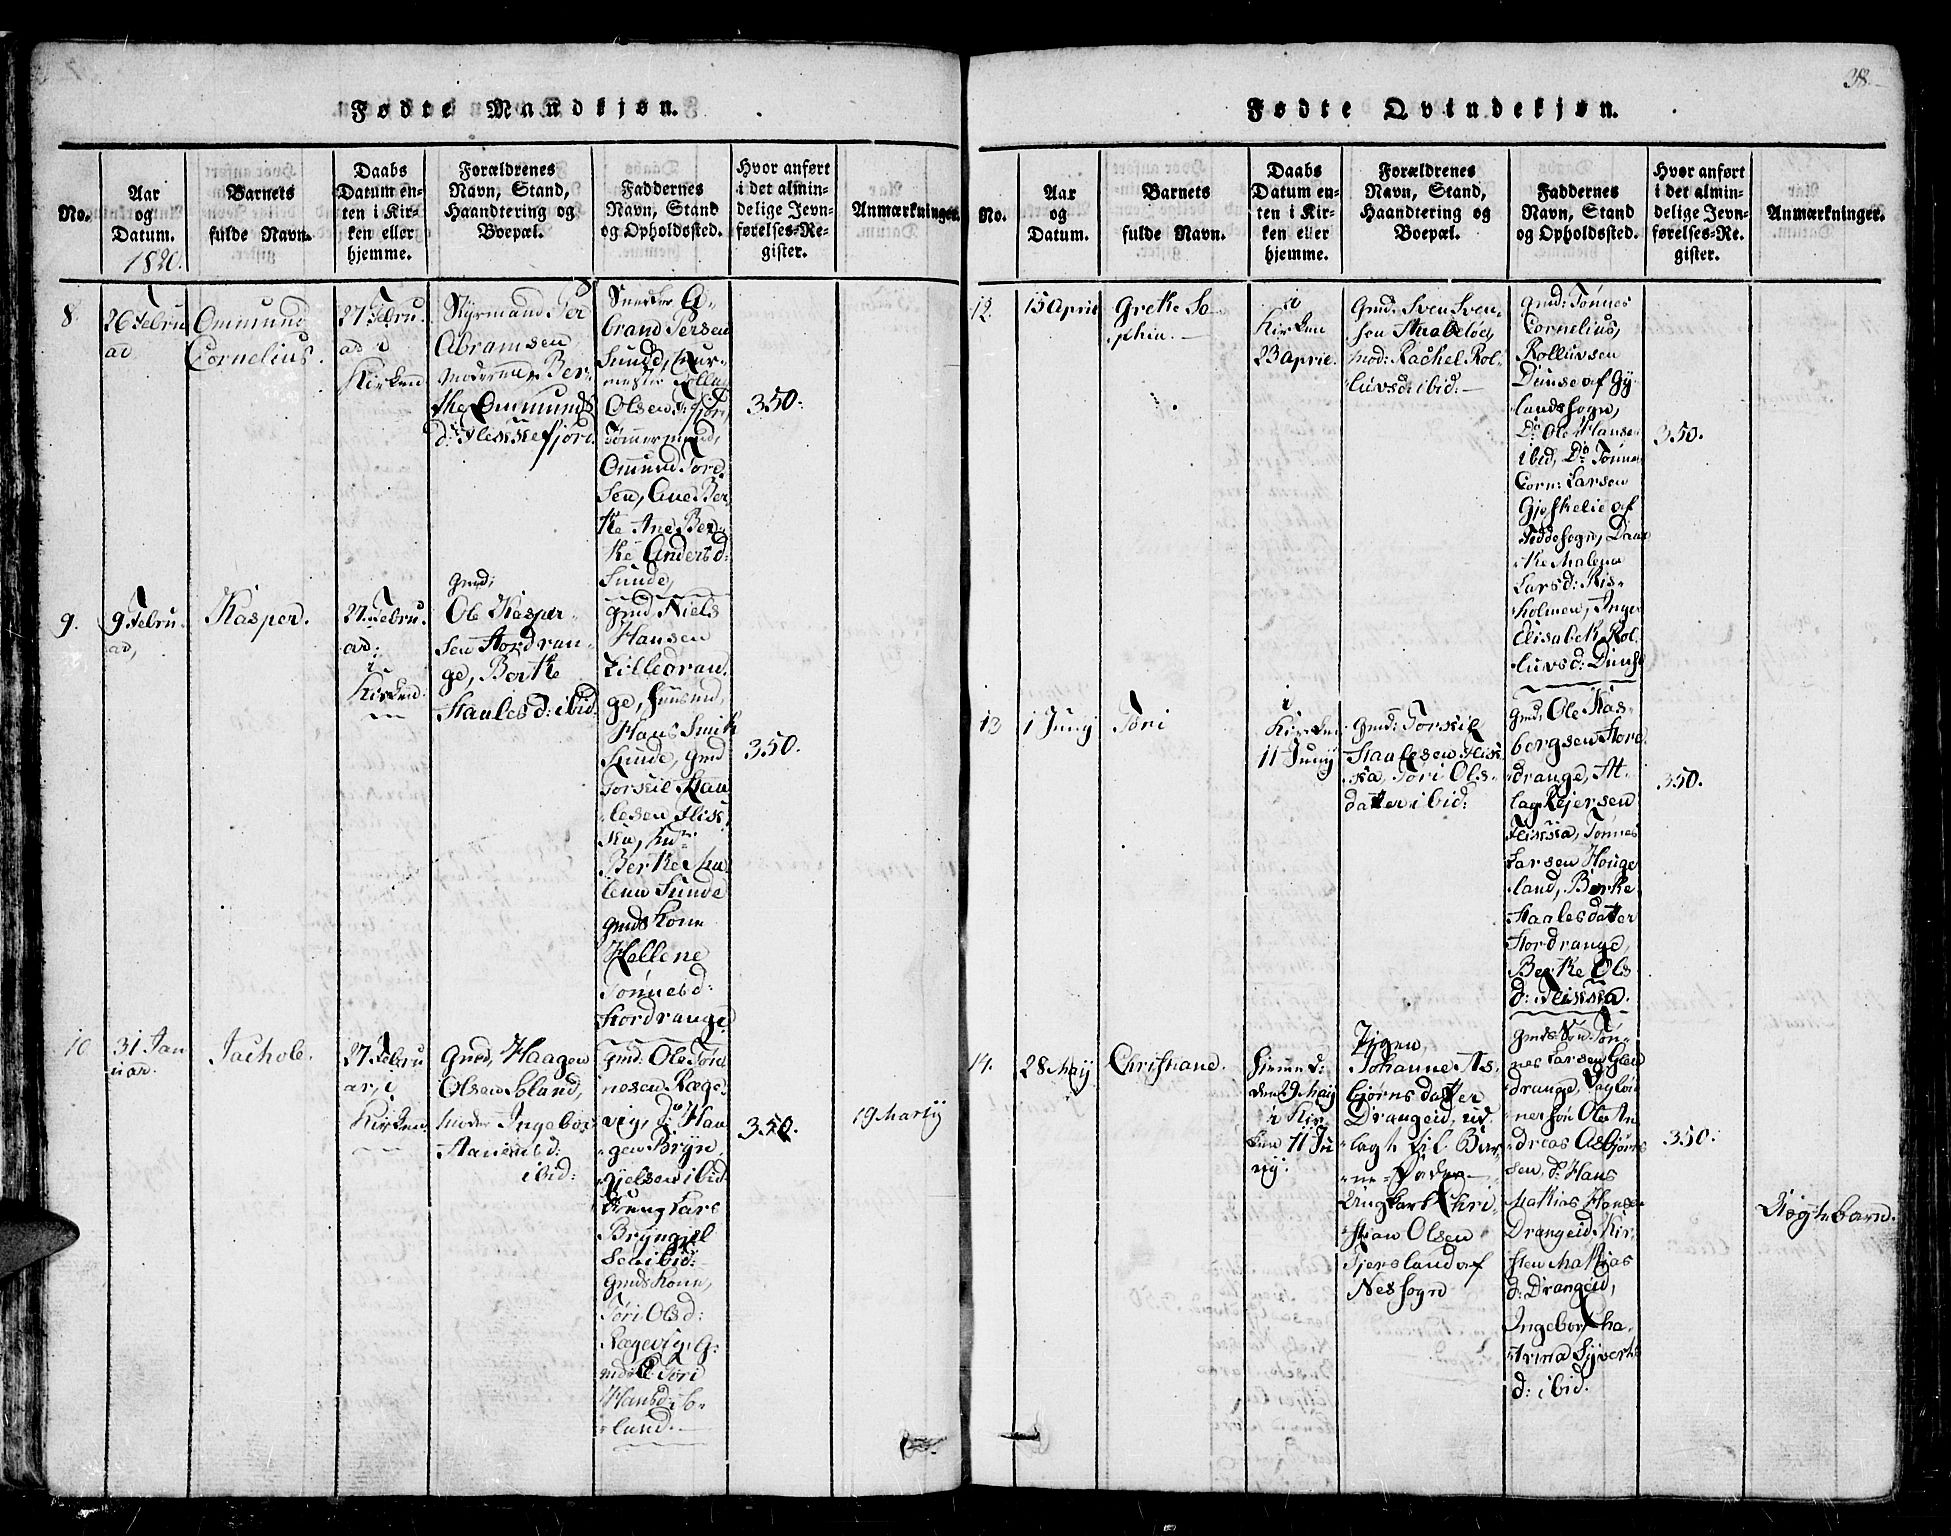 Fødte Mandkjøn.
No.
Aar
og
Datum.
1820.
Barnets
fulde Navn.
Daabs
Datum en-
ten i Kir-
ken eller
hjemme.
Forældrenes
Navn, Stand,
Haandtering og
Boepæl.
Faddernes
Navn, Stand
og Opholdssted.
Hvor anført
i det almin-
delige Jevn-
førelses-Re-
gister.
Anmærkninger.
8
26 Febru
ar
Ommund
Cornelius.
27 Febru.
ar i
Kirken
Styrmand Per
Abramsen
moderen Ber-
the Ommunds
d: Flekkefjord.
Snedker
brand Persen
Sunde,
Olsen
Tømmermand,
Omund Tord
sen, Ane Ber
the Ane Ber-
the Andersd:
Sunde,
350.
9.
9 Febru.
ar,
Kasper.
27 Febru.
ar:
i
Kirken.
Gmd:
Ole Kasper-
sen Stordran-
ge, Berthe
Staalesd: ibid:
gmd, Niels
Hansen
Lilledran.
ge,
Hans Smith
Sunde, gmd
Torkil Staa
lesen Flik
ka,
Berthe Ma
lena Sunde
gmds Kone
Hellene
Tønnesd:
Stordrange
350.
10
31 Jan
uar.
Jachole.
27 Febru
ar, i
Kirken.
Gmd, Haagen
Olsen Soland,
moder Ingebor
ibid:
Gmd: Ole Tøn
nesen Ræge-
vig, do Haa
gen Bryn
gjelsen ibid
Ung Lars
Bryngiel
sen ibid:
Gmds Kone,
Tøri Olsd:
Rægevig, G:
md: Tøri
Hansd: So-
land.
350.
19 Martij
38
Fødte Qvindekjøn.
No.
Aar
og
Datum.
Barnets
fulde Navn.
Daabs
Datum en-
ten i Kir-
ken eller
hjemme.
Forældrenes
Navn, Stand,
Haandtering og
Boepæl.
Faddernes
Navn, Stand
og Opholdssted.
Hvor anført
i det almin-
delige Jevn-
førelses-Re-
gister.
Anmærkninger.
12.
15 April
Grethe So-
phia.
i
Kirken
23 April.
Gmd: Sven Sven-
sen Stakeløe,
mod: Rachel Rol-
luvsd: ibid:
Gmd: Tønnes
Cornelius,
Rolluvsen
Dunse af Gy-
lands sogn,
Do Ole Hansen
ibid, Do Tønnes
Corn: Larsen
af
Feddesogn,
the Malena
Larsd: Ris-
holmen, Inger
Elisabeth Rol
luvsd: Dunse
350.
13
1 Juny
Tøri
i
Kirken
11 Juny
Gmd: Torkil
Staalesen Flik
ka, Tøri Ols-
datter ibid:
gmd, Ole Kas-
bergsen Stor-
drange, At-
lag Rejersen
Flikka, Tønnes
Larsen Houge
land, Berthe
Staalesdatter
Stordrange,
Berthe Ols
d: Flikka.
350.
14.
28 Maij
Christiane.
d:
den 29 Maij
i Kir-
ken 11 Ju
nij:
Pigen
Johanne As-
bjørns datter
Drangeid, ud-
lagt til Bar-
ne-Fader
Ungkarl Chri-
stian Olsen
Fjersland af
Nes sogn
gmds Søn Tøn-
nes Larsen
drange,
Ole An
dreas Asbjørn
sen, do Hans
Mathias Hansen
Drangeid, Kir-
sten Mathias
d: Drangeid,
Ingebor Cha-
trina Syverts
d: ibid.
350.
Uægte barn.